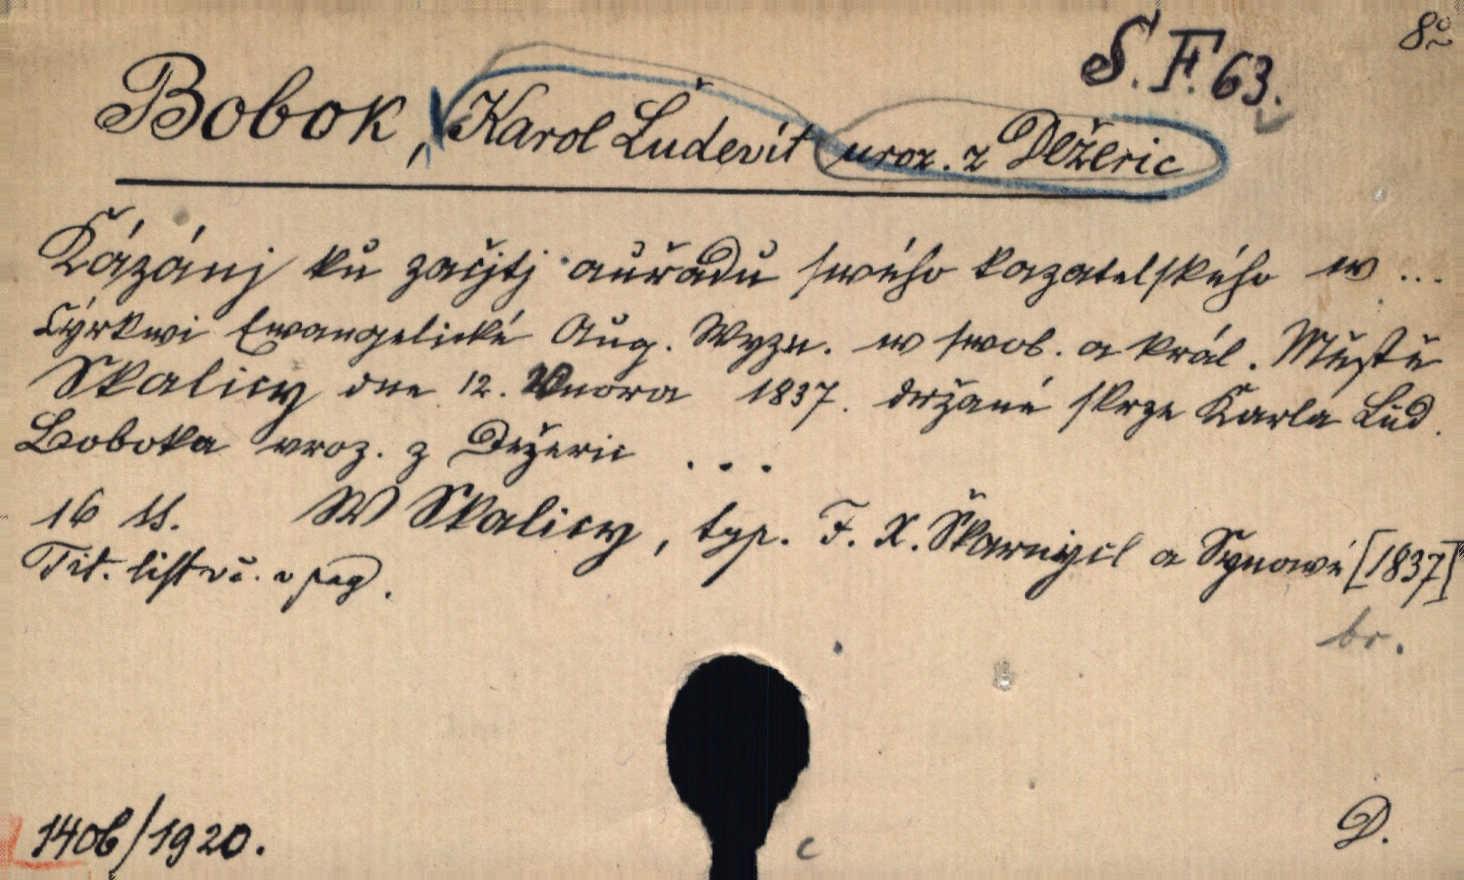 8°
S. F. 63.
Bobok, Karol Ľudevít uroz. z Dežeric
Kázánj ku začjtj auřadu swého kazatelského w ...
Cýrkwi Ewangelické Aug. Wyzn. w swob. a král. Městě
Skalicy dne 12. Února 1837. držané skrze Karla Lud.
Boboka uroz. z Dežeric ...
16 ss. W Skalicy, typ. F. X. Škarnycl a Synowé [1837]
Tit. list vč. v pag.
br.
1406/1920.
c
D.